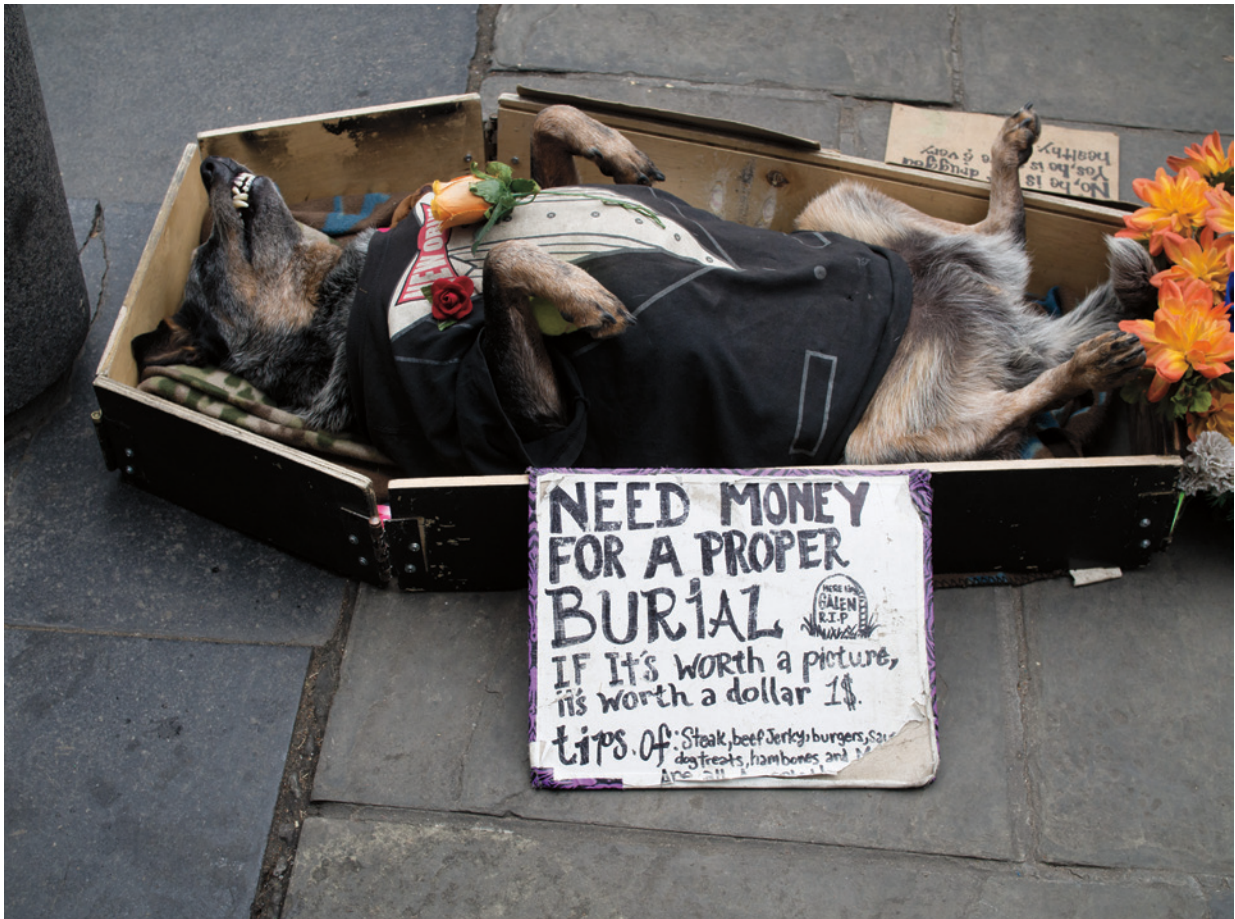 NEW OR
No, he is
druggou
Yes, he is & very
healthy.
NEED MONEY
FOR A PROPER
BURIAL
HERE lies
GALEN
R.I.P
IF It's WORTH a picture,
it's worth a dollar 1$.
tips of: Steak, beef Jerky, burgers,
dog treats, hambones, and
Are all